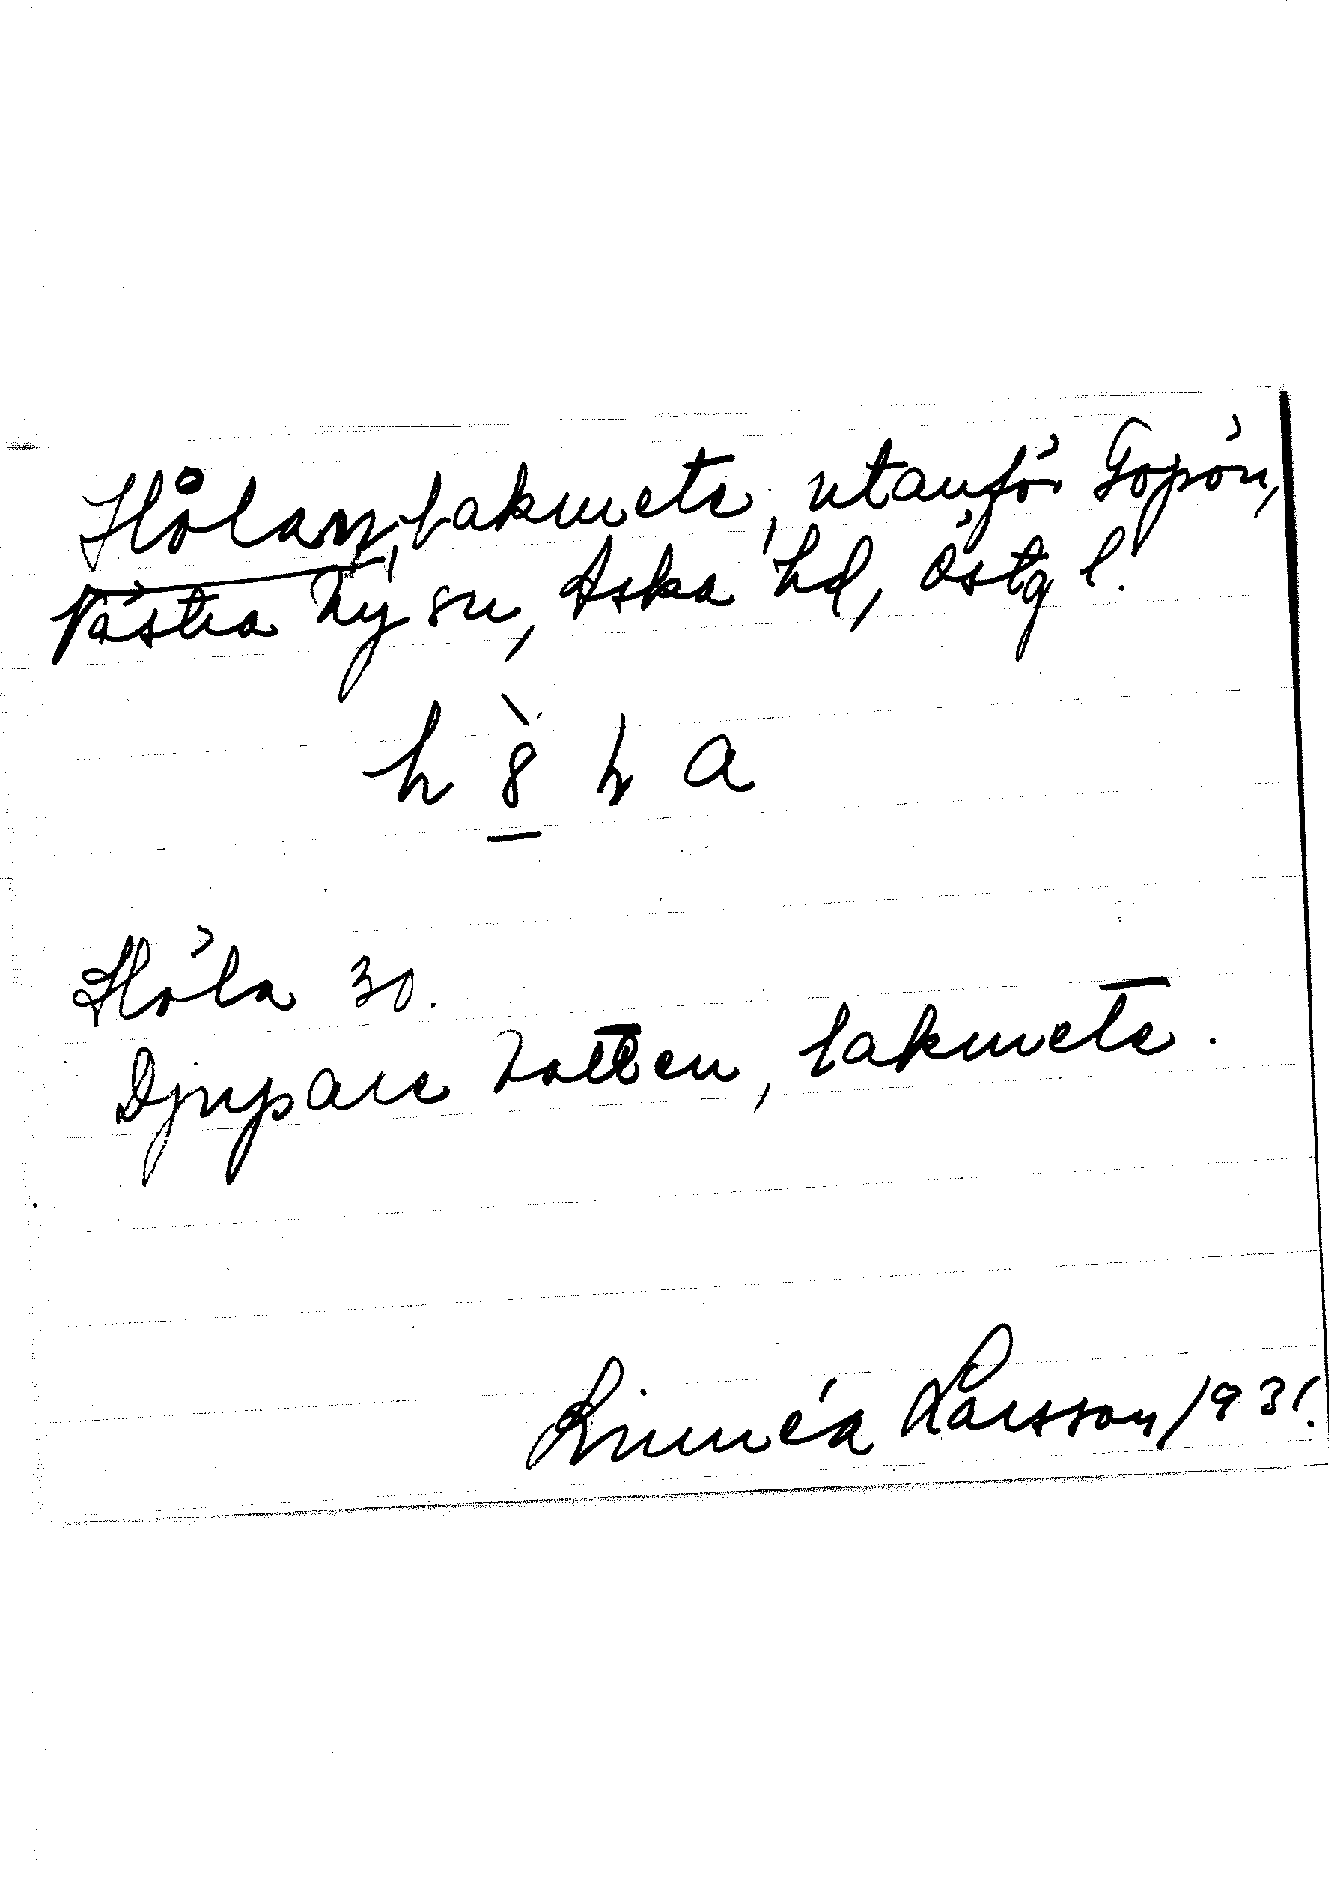 Hålan, bakmete, utanför Gopön,
Västra Ny sn, Aska hd, Östg l.
Håla 30.
Djupare vatten, bakmete.
Linnéa Larsson 1931.